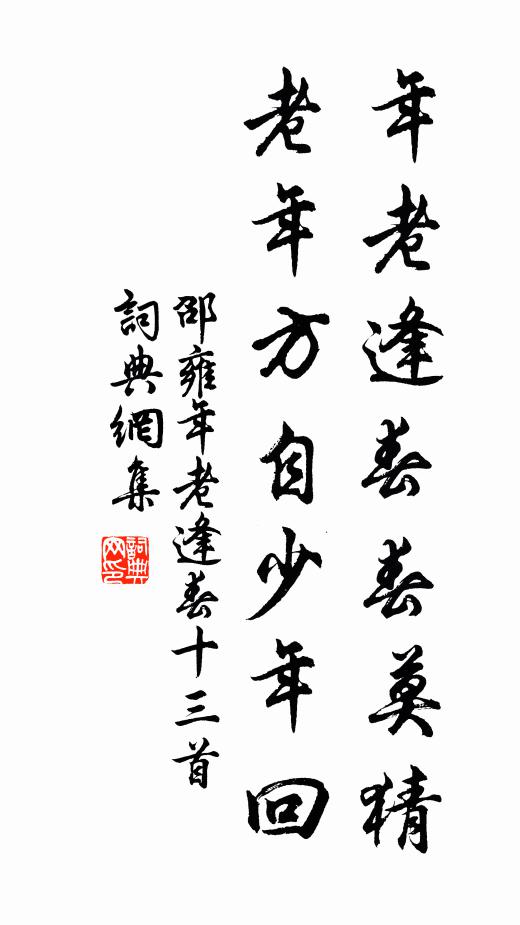 年老逢春春莫猜
老年方自少年回
邵雍年老逢春十三首
詞典網集
詞典網印